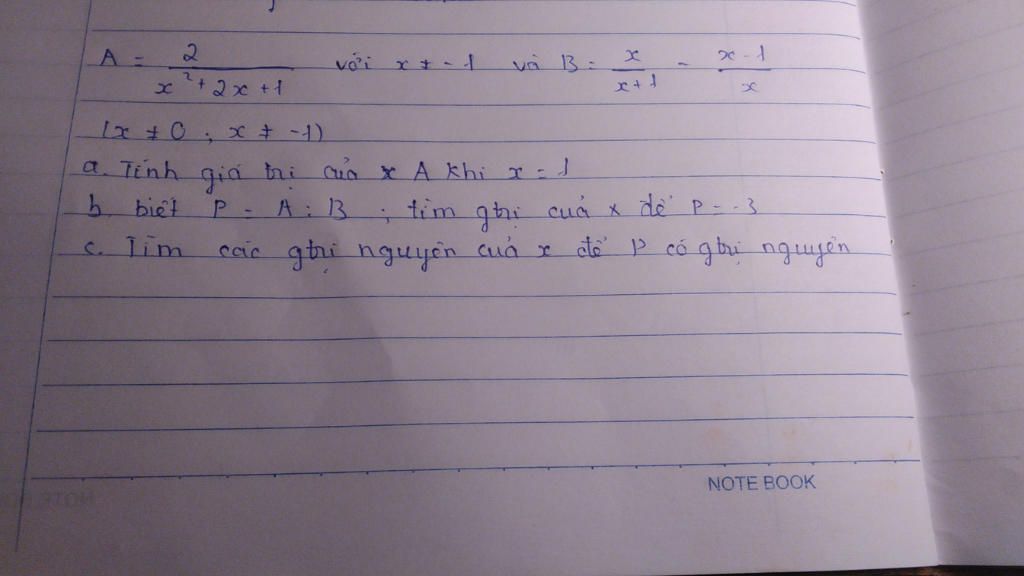 A = 2/(x² + 2x + 1) với x ≠ -1 và B = x/(x+1) - (x-1)/x
(x ≠ 0 ; x ≠ -1)
a. Tính giá trị của x A khi x = 1
b. biết P = A : B ; tìm gtrị cuả x để P = -3
c. Tìm các gtrị nguyên cuả x để P có gtrị nguyên
NOTE BOOK